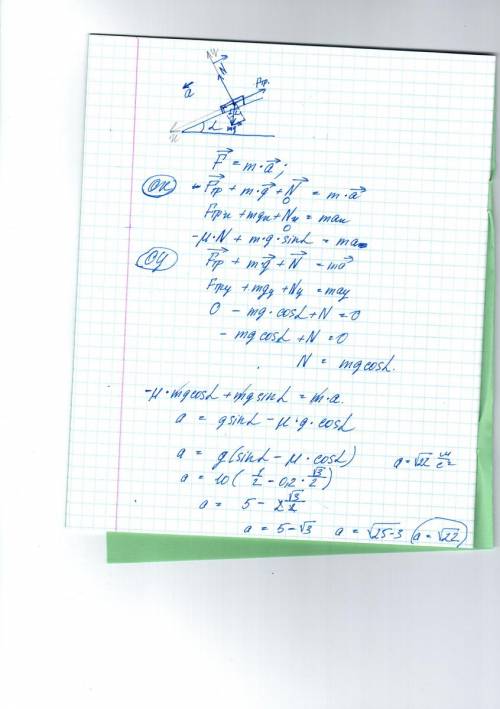 y
N
Fтр.
a⃗
α
mg
x
F⃗ = m·a⃗;
Ox F⃗тр + m·g⃗ + N⃗ = m·a⃗
0
Fтрx + mgx + Nx = max
0
-μ·N + m·g·sinα = ma
Oy F⃗тр + m·g⃗ + N⃗ = ma⃗
Fтрy + mgy + Ny = may
0 - mg·cosα + N = 0
- mgcosα + N = 0
N = mgcosα.
-μ·mgcosα + mgsinα = m·a.
a = gsinα - μ·g·cosα
a = g(sinα - μ·cosα) a = √22 м/с²
a = 10(1/2 - 0,2·√3/2)
a = 5 - 2√3/2
a = 5 - √3 a = √25-3 a = √22